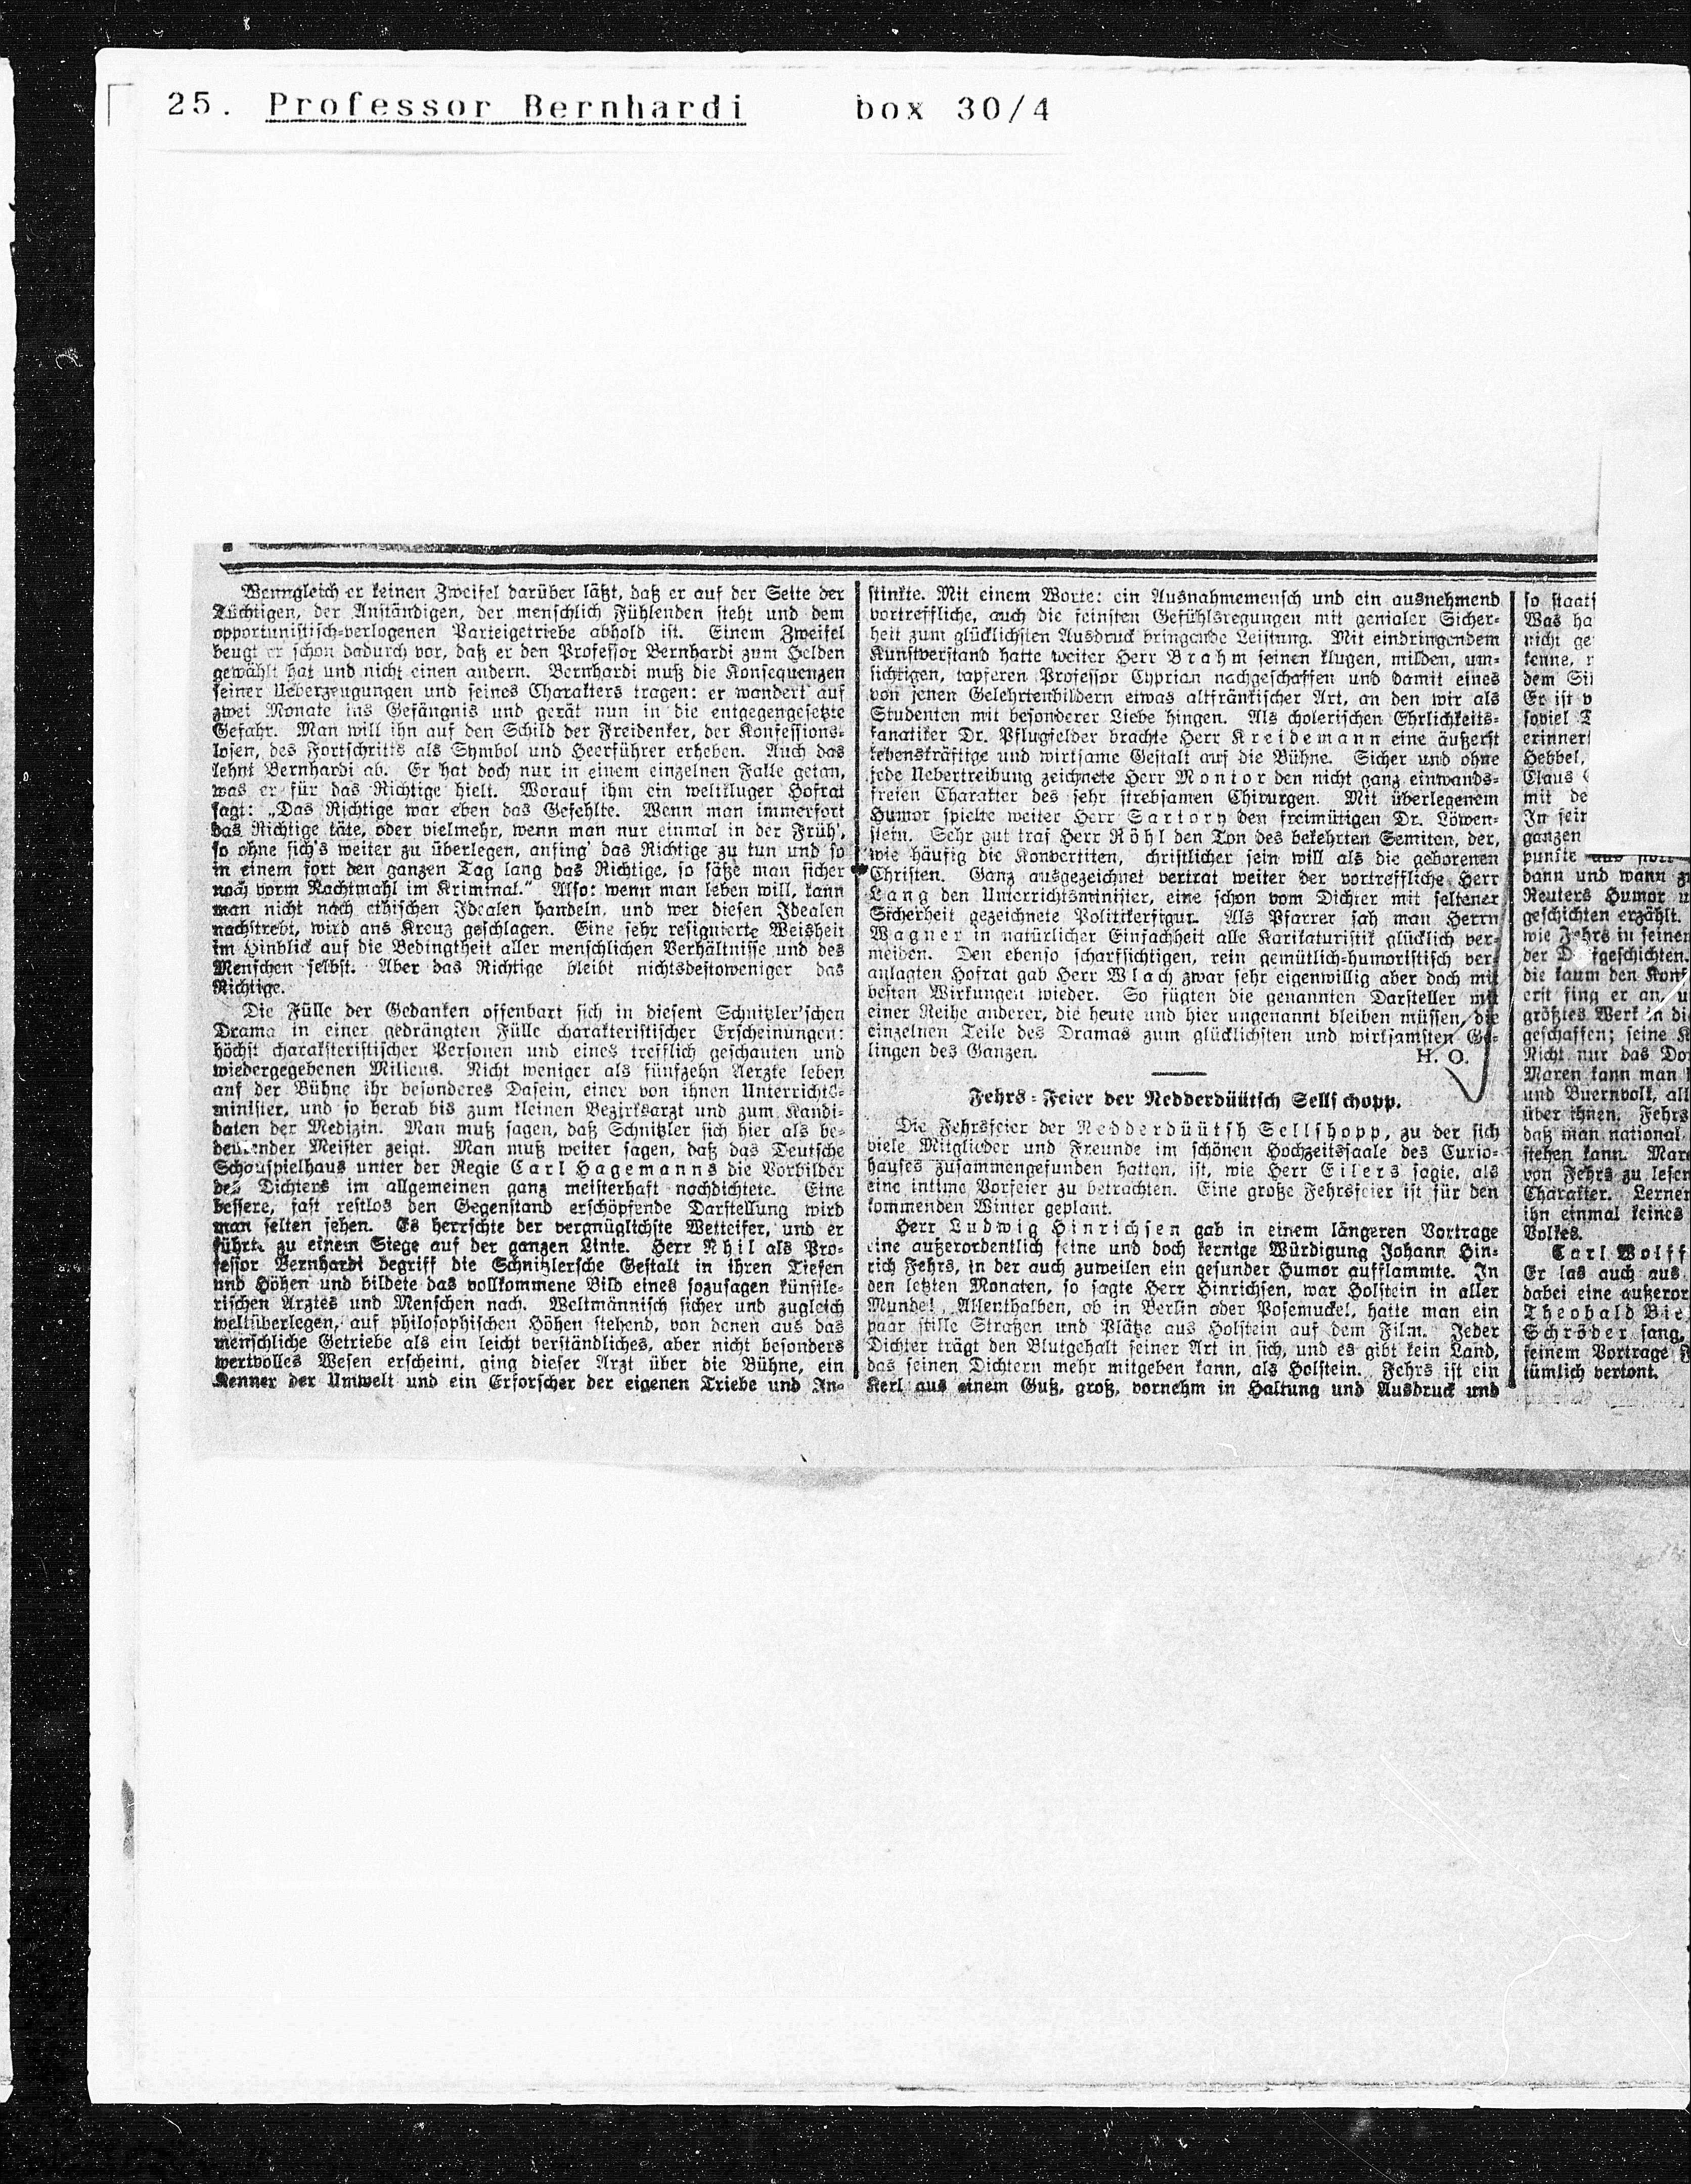 25. Professor Bernhardi box 30/4
Wenngleich er keinen Zweifel darüber läßt, daß er auf der Seite der
Tüchtigen, der Anständigen, der menschlich Fühlenden steht und dem
opportunistisch-verlogenen Parteigetriebe abhold ist. Einem Zweifel
beugt er schon dadurch vor, daß er den Professor Bernhardi zum Helden
gewählt hat und nicht einen andern. Bernhardi muß die Konsequenzen
seiner Ueberzeugungen und seines Charakters tragen: er wandert auf
zwei Monate ins Gefängnis und gerät nun in die entgegengesetzte
Gefahr. Man will ihn auf den Schild der Freidenker, der Konfessions-
losen, des Fortschritts als Symbol und Heerführer erheben. Auch das
lehnt Bernhardi ab. Er hat doch nur in einem einzelnen Falle getan,
was er für das Richtige hielt. Worauf ihm ein weltkluger Hofrat
sagt: „Das Richtige war eben das Gefehlte. Wenn man immerfort
das Richtige täte, oder vielmehr, wenn man nur einmal in der Früh',
so ohne sich's weiter zu überlegen, anfing' das Richtige zu tun und so
in einem fort den ganzen Tag lang das Richtige, so säße man sicher
noch vorm Nachtmahl im Kriminal.“ Also: wenn man leben will, kann
man nicht nach ethischen Idealen handeln, und wer diesen Idealen
nachstrebt, wird ans Kreuz geschlagen. Eine sehr resignierte Weisheit
im Hinblick auf die Bedingtheit aller menschlichen Verhältnisse und des
Menschen selbst. Aber das Richtige bleibt nichtsdestoweniger das
Richtige.
Die Fülle der Gedanken offenbart sich in diesem Schnitzler'schen
Drama in einer gedrängten Fülle charakteristischer Erscheinungen:
höchst charakteristischer Personen und eines trefflich geschauten und
wiedergegebenen Milieus. Nicht weniger als fünfzehn Aerzte leben
auf der Bühne ihr besonderes Dasein, einer von ihnen Unterrichts-
minister, und so herab bis zum kleinen Bezirksarzt und zum Kandi-
daten der Medizin. Man muß sagen, daß Schnitzler sich hier als be-
deutender Meister zeigt. Man muß weiter sagen, daß das Deutsche
Schauspielhaus unter der Regie Carl Hagemanns die Vorbilder
des Dichters im allgemeinen ganz meisterhaft nachdichtete. Eine
bessere, fast restlos den Gegenstand erschöpfende Darstellung wird
man selten sehen. Es herrschte der vergnüglichste Wetteifer, und er
führte zu einem Siege auf der ganzen Linie. Herr Nhil als Pro-
fessor Bernhardi begriff die Schnitzlersche Gestalt in ihren Tiefen
und Höhen und bildete das vollkommene Bild eines sozusagen künstle-
rischen Arztes und Menschen nach. Weltmännisch sicher und zugleich
weltüberlegen, auf philosophischen Höhen stehend, von denen aus das
menschliche Getriebe als ein leicht verständliches, aber nicht besonders
wertvolles Wesen erscheint, ging dieser Arzt über die Bühne, ein
Kenner der Umwelt und ein Erforscher der eigenen Triebe und In-
stinkte. Mit einem Worte: ein Ausnahmemensch und ein ausnehmend
vortreffliche, auch die feinsten Gefühlsregungen mit genialer Sicher-
heit zum glücklichsten Ausdruck bringende Leistung. Mit eindringendem
Kunstverstand hatte weiter Herr Brahm seinen klugen, milden, um-
sichtigen, tapferen Professor Cyprian nachgeschaffen und damit eines
von jenen Gelehrtenbildern etwas altfränkischer Art, an den wir als
Studenten mit besonderer Liebe hingen. Als cholerischen Ehrlichkeits-
fanatiker Dr. Pflugfelder brachte Herr Kreidemann eine äußerst
lebenskräftige und wirksame Gestalt auf die Bühne. Sicher und ohne
jede Uebertreibung zeichnete Herr Montor den nicht ganz einwands-
freien Charakter des sehr strebsamen Chirurgen. Mit überlegenem
Humor spielte weiter Herr Sartory den freimütigen Dr. Löwen-
stein. Sehr gut traf Herr Röhl den Ton des bekehrten Semiten, der,
wie häufig die Konvertiten, christlicher sein will als die geborenen
Christen. Ganz ausgezeichnet vertrat weiter der vortreffliche Herr
Lang den Unterrichtsminister, eine schon vom Dichter mit seltener
Sicherheit gezeichnete Politikerfigur. Als Pfarrer sah man Herrn
Wagner in natürlicher Einfachheit alle Karikaturistik glücklich ver-
meiden. Den ebenso scharfsichtigen, rein gemütlich-humoristisch ver-
anlagten Hofrat gab Herr Wlach zwar sehr eigenwillig aber doch mit
besten Wirkungen wieder. So fügten die genannten Darsteller mit
einer Reihe anderer, die heute und hier ungenannt bleiben müssen, die
einzelnen Teile des Dramas zum glücklichsten und wirksamsten Ge-
lingen des Ganzen. H. O.
Fehrs-Feier der Nedderdüütsch Sellschopp.
Die Fehrsfeier der Nedderdüütsh Sellshopp, zu der sich
viele Mitglieder und Freunde im schönen Hochzeitssaale des Curio-
hauses zusammengefunden hatten, ist, wie Herr Eilers sagte, als
eine intime Vorfeier zu betrachten. Eine große Fehrsfeier ist für den
kommenden Winter geplant.
Herr Ludwig Hinrichsen gab in einem längeren Vortrage
eine außerordentlich feine und doch kernige Würdigung Johann Hin-
rich Fehrs, in der auch zuweilen ein gesunder Humor aufflammte. In
den letzten Monaten, so sagte Herr Hinrichsen, war Holstein in aller
Munde! Allenthalben, ob in Berlin oder Posemuckel, hatte man ein
paar stille Straßen und Plätze aus Holstein auf dem Film. Jeder
Dichter trägt den Blutgehalt seiner Art in sich, und es gibt kein Land,
das seinen Dichtern mehr mitgeben kann, als Holstein. Fehrs ist ein
Kerl aus einem Guß, groß, vornehm in Haltung und Ausdruck und
so staats
Was ha
nicht ge
kenne,
dem
Er ist v
soviel
erinner
Hebbel,
Claus
mit de
In sein
ganzen
punkte
dann und wann
Reuters Humor
geschichten erzählt.
wie Fehrs in seinen
der Dorfgeschichten.
die kaum den
erst fing er an,
größtes Werk in
geschaffen; seine
Nicht nur das
Maren kann man
und Buernvolk, all
über ihnen. Fehrs
daß man national
stehen kann.
von Fehrs zu lesen
Charakter. Lerne
ihn einmal keines
Volkes.
Carl Wolff
Er las auch aus
dabei eine außeror
Theobald Bie
Schröder sang,
seinem Vortrage
tümlich vertont.